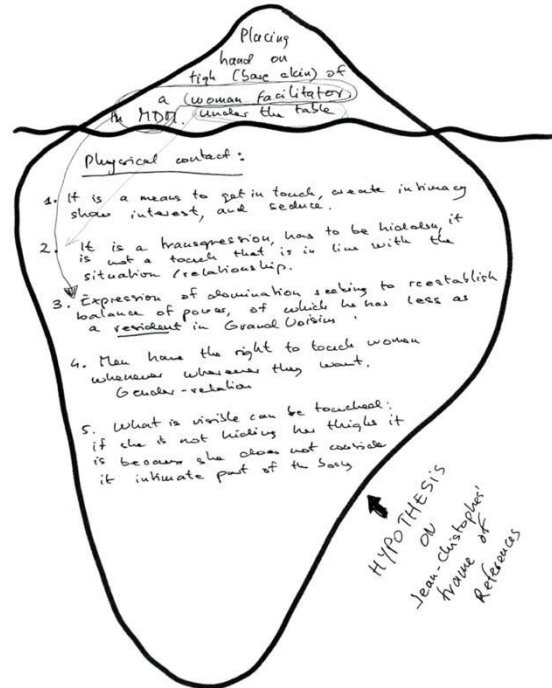 Placing
hand on
tigh (bare skin) of
a (woman facilitator)
in MDM. under the table
Physical contact:
1. It is a means to get in touch, create intimacy
show interest, and seduce.
2. It is a transgression, has to be hidden, it
is not a touch that is in line with the
situation/relationship.
3. Expression of domination seeking to reestablish
balance of power, of which he has less as
a resident in Grand Voisins.
4. Men have the right to touch women
whenever wherever they want.
Gender-relation
5. What is visible can be touched:
if she is not hiding her thighs it
is because she does not consider
it intimate part of th body
HYPOTHESIS
ON
Jean-Christophes'
frame of
References